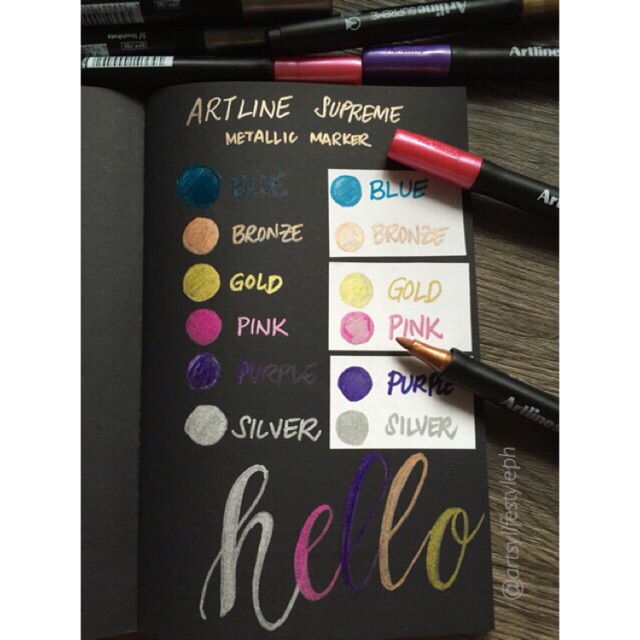 Artline SUPREME
Artline
ARTLINE SUPREME
METALLIC MARKER
BLUE BLUE
BRONZE BRONZE
GOLD GOLD
PINK PINK
PURPLE PURPLE
SILVER SILVER
Artline
hello
@artsylifestyleph